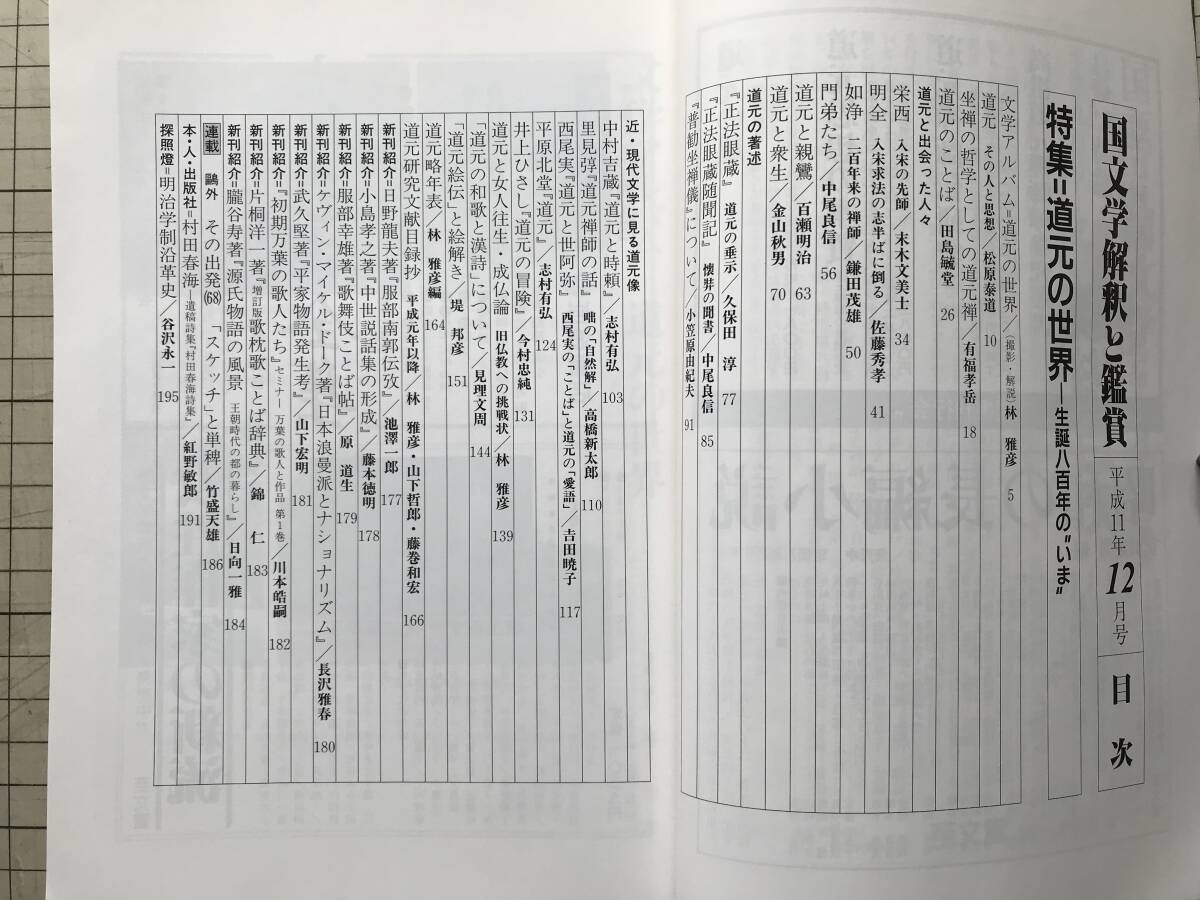 国文学解釈と鑑賞 平成11年12月号 目次
特集=道元の世界―生誕八百年の"いま"
文学アルバム=道元の世界/(撮影・解説)林 雅彦 5
道元 その人と思想/松原泰道 10
坐禅の哲学としての道元禅/有福孝岳 18
道元のことば/田島毓堂 26
道元と出会った人々
栄西 入宋の先師/末木文美士 34
明全 入宋求法の志半ばに倒る/佐藤秀孝 41
如浄 二百年来の禅師/鎌田茂雄 50
門弟たち/中尾良信 56
道元と親鸞/百瀬明治 63
道元と衆生/金山秋男 70
道元の著述
『正法眼蔵』 道元の垂示/久保田 淳 77
『正法眼蔵随聞記』 懐弉の聞書/中尾良信 85
『普勧坐禅儀』について/小笠原由紀夫 91
近・現代文学に見る道元像
中村吉蔵『道元と時頼』/志村有弘 103
里見弴『道元禅師の話』 咄の「自然解」/高橋新太郎 110
西尾実『道元と世阿弥』 西尾実の「ことば」と道元の「愛語」/吉田暁子 117
平原北堂『道元』/志村有弘 124
井上ひさし『道元の冒険』/今村忠純 131
道元と女人往生・成仏論 旧仏教への挑戦状/林 雅彦 139
「道元の和歌と漢詩」について/見理文周 144
「道元絵伝」と絵解き/堤 邦彦 151
道元略年表/林 雅彦編 164
道元研究文献目録抄 平成元年以降/林 雅彦・山下哲郎・藤巻和宏 166
新刊紹介=日野龍夫著『服部南郭伝攷』/池澤一郎 177
新刊紹介=小島孝之著『中世説話集の形成』/藤本徳明 178
新刊紹介=服部幸雄著『歌舞伎ことば帖』/原 道生 179
新刊紹介=ケヴィン・マイケル・ドーク著『日本浪曼派とナショナリズム』/長沢雅春 180
新刊紹介=武久堅著『平家物語発生考』/山下宏明 181
新刊紹介=『初期万葉の歌人たち』セミナー 万葉の歌人と作品 第1巻/川本皓嗣 182
新刊紹介=片桐洋一著『増訂版歌枕歌ことば辞典』/錦 仁 183
新刊紹介=朧谷寿著『源氏物語の風景 王朝時代の都の暮らし』/日向一雅 184
連載 鷗外 その出発(68) 「スケッチ」と単稗/竹盛天雄 186
本・人・出版社=村田春海 遺稿詩集『村田春海詩集』/紅野敏郎 191
探照燈=明治学制沿革史/谷沢永一 195